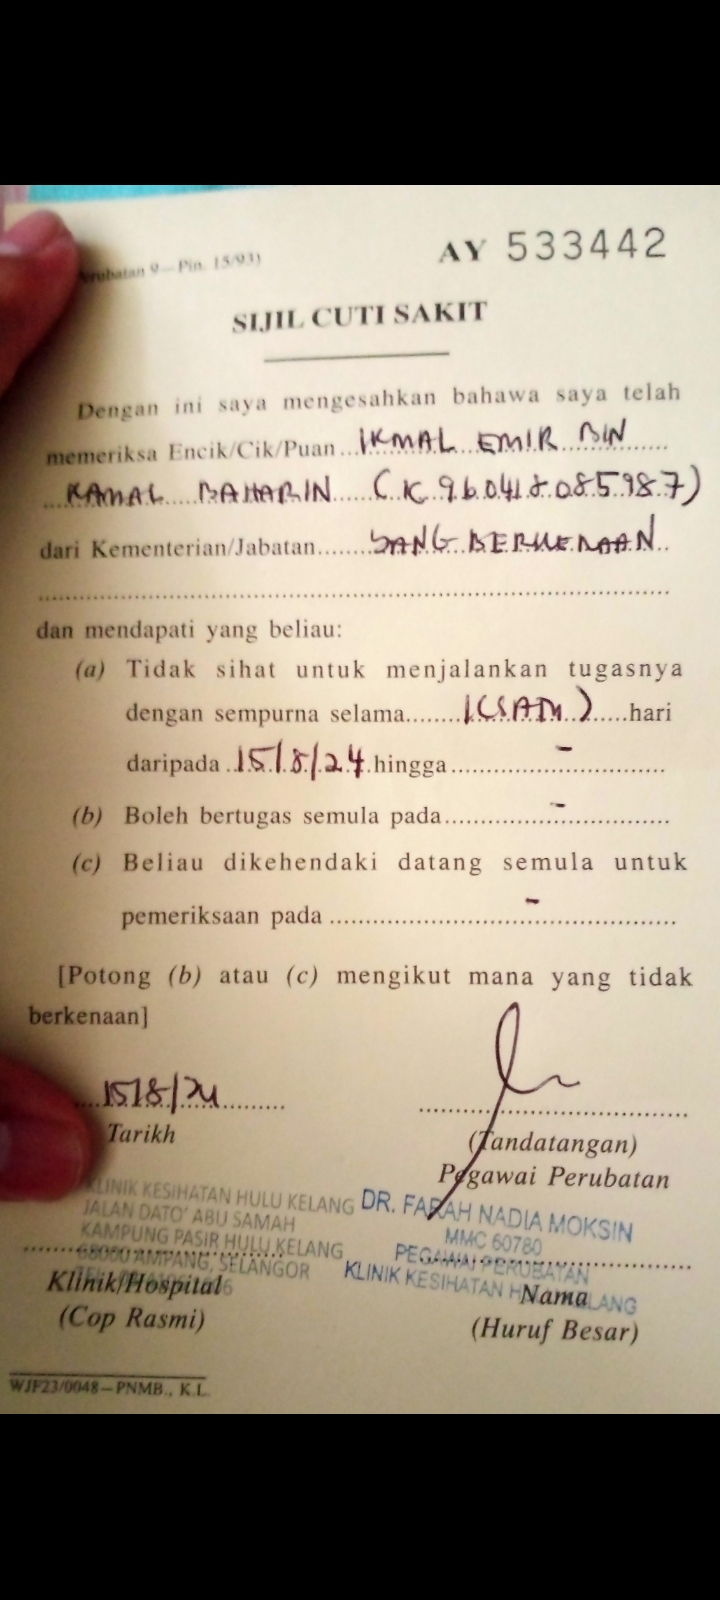 AY 533442
Perubatan 9—Pin. 15/93)
SIJIL CUTI SAKIT
Dengan ini saya mengesahkan bahawa saya telah
memeriksa Encik/Cik/Puan IKMAL EMIR BIN
KAMAL BAHARIN (K 960418085987)
dari Kementerian/Jabatan YANG BERKENAAN
dan mendapati yang beliau:
(a) Tidak sihat untuk menjalankan tugasnya
dengan sempurna selama 1 (SATU) hari
daripada 15/8/24 hingga -
(b) Boleh bertugas semula pada -
(c) Beliau dikehendaki datang semula untuk
pemeriksaan pada -
[Potong (b) atau (c) mengikut mana yang tidak
berkenaan]
15/8/24
Tarikh
(Tandatangan)
Pegawai Perubatan
KLINIK KESIHATAN HULU KELANG
JALAN DATO' ABU SAMAH
KAMPUNG PASIR HULU KELANG
68000 AMPANG, SELANGOR
Klinik/Hospital
(Cop Rasmi)
DR. FARAH NADIA MOKSIN
MMC 60780
PEGAWAI PERUBATAN
KLINIK KESIHATAN HULU KELANG
Nama
(Huruf Besar)
WJF23/0048—PNMB., K.L.